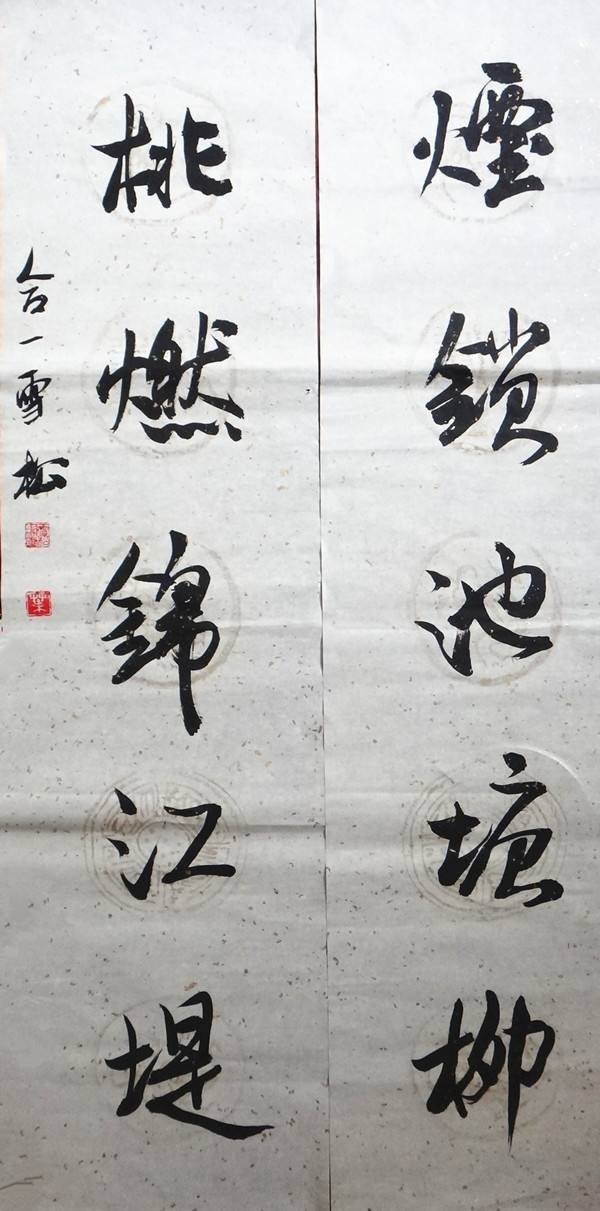 煙鎖池塘柳
桃燃錦江堤
合一雪松